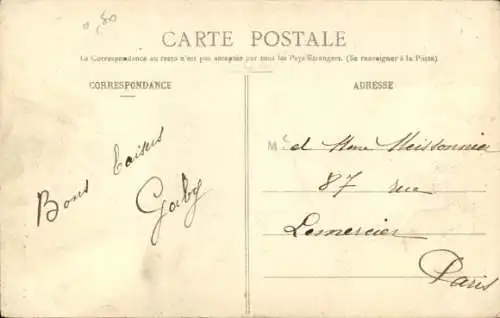 0,80
CARTE POSTALE
La Correspondance au recto n'est pas acceptée par tous les Pays Etrangers. (Se renseigner à la Poste)
CORRESPONDANCE
ADRESSE
Bons baisers
Gaby
M et Mme Meissonnier
87 rue
Lemercier
Paris